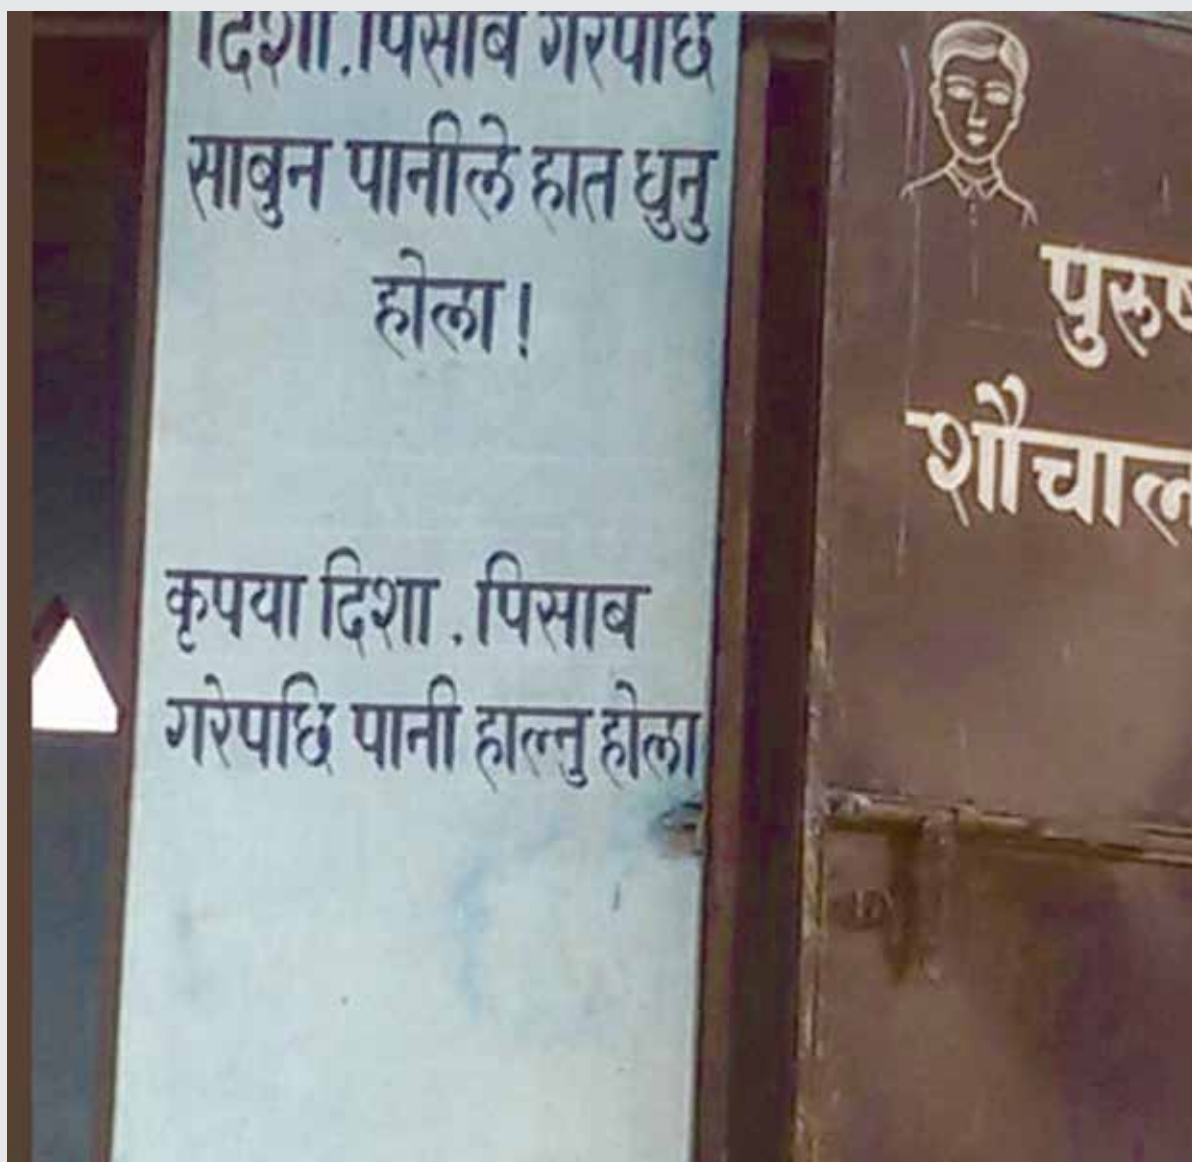 दिशा.पिसाब गरेपछि
साबुन पानीले हात धुनु
होला!
कृपया दिशा . पिसाब
गरेपछि पानी हाल्नु होला
पुरुष
शौचाल